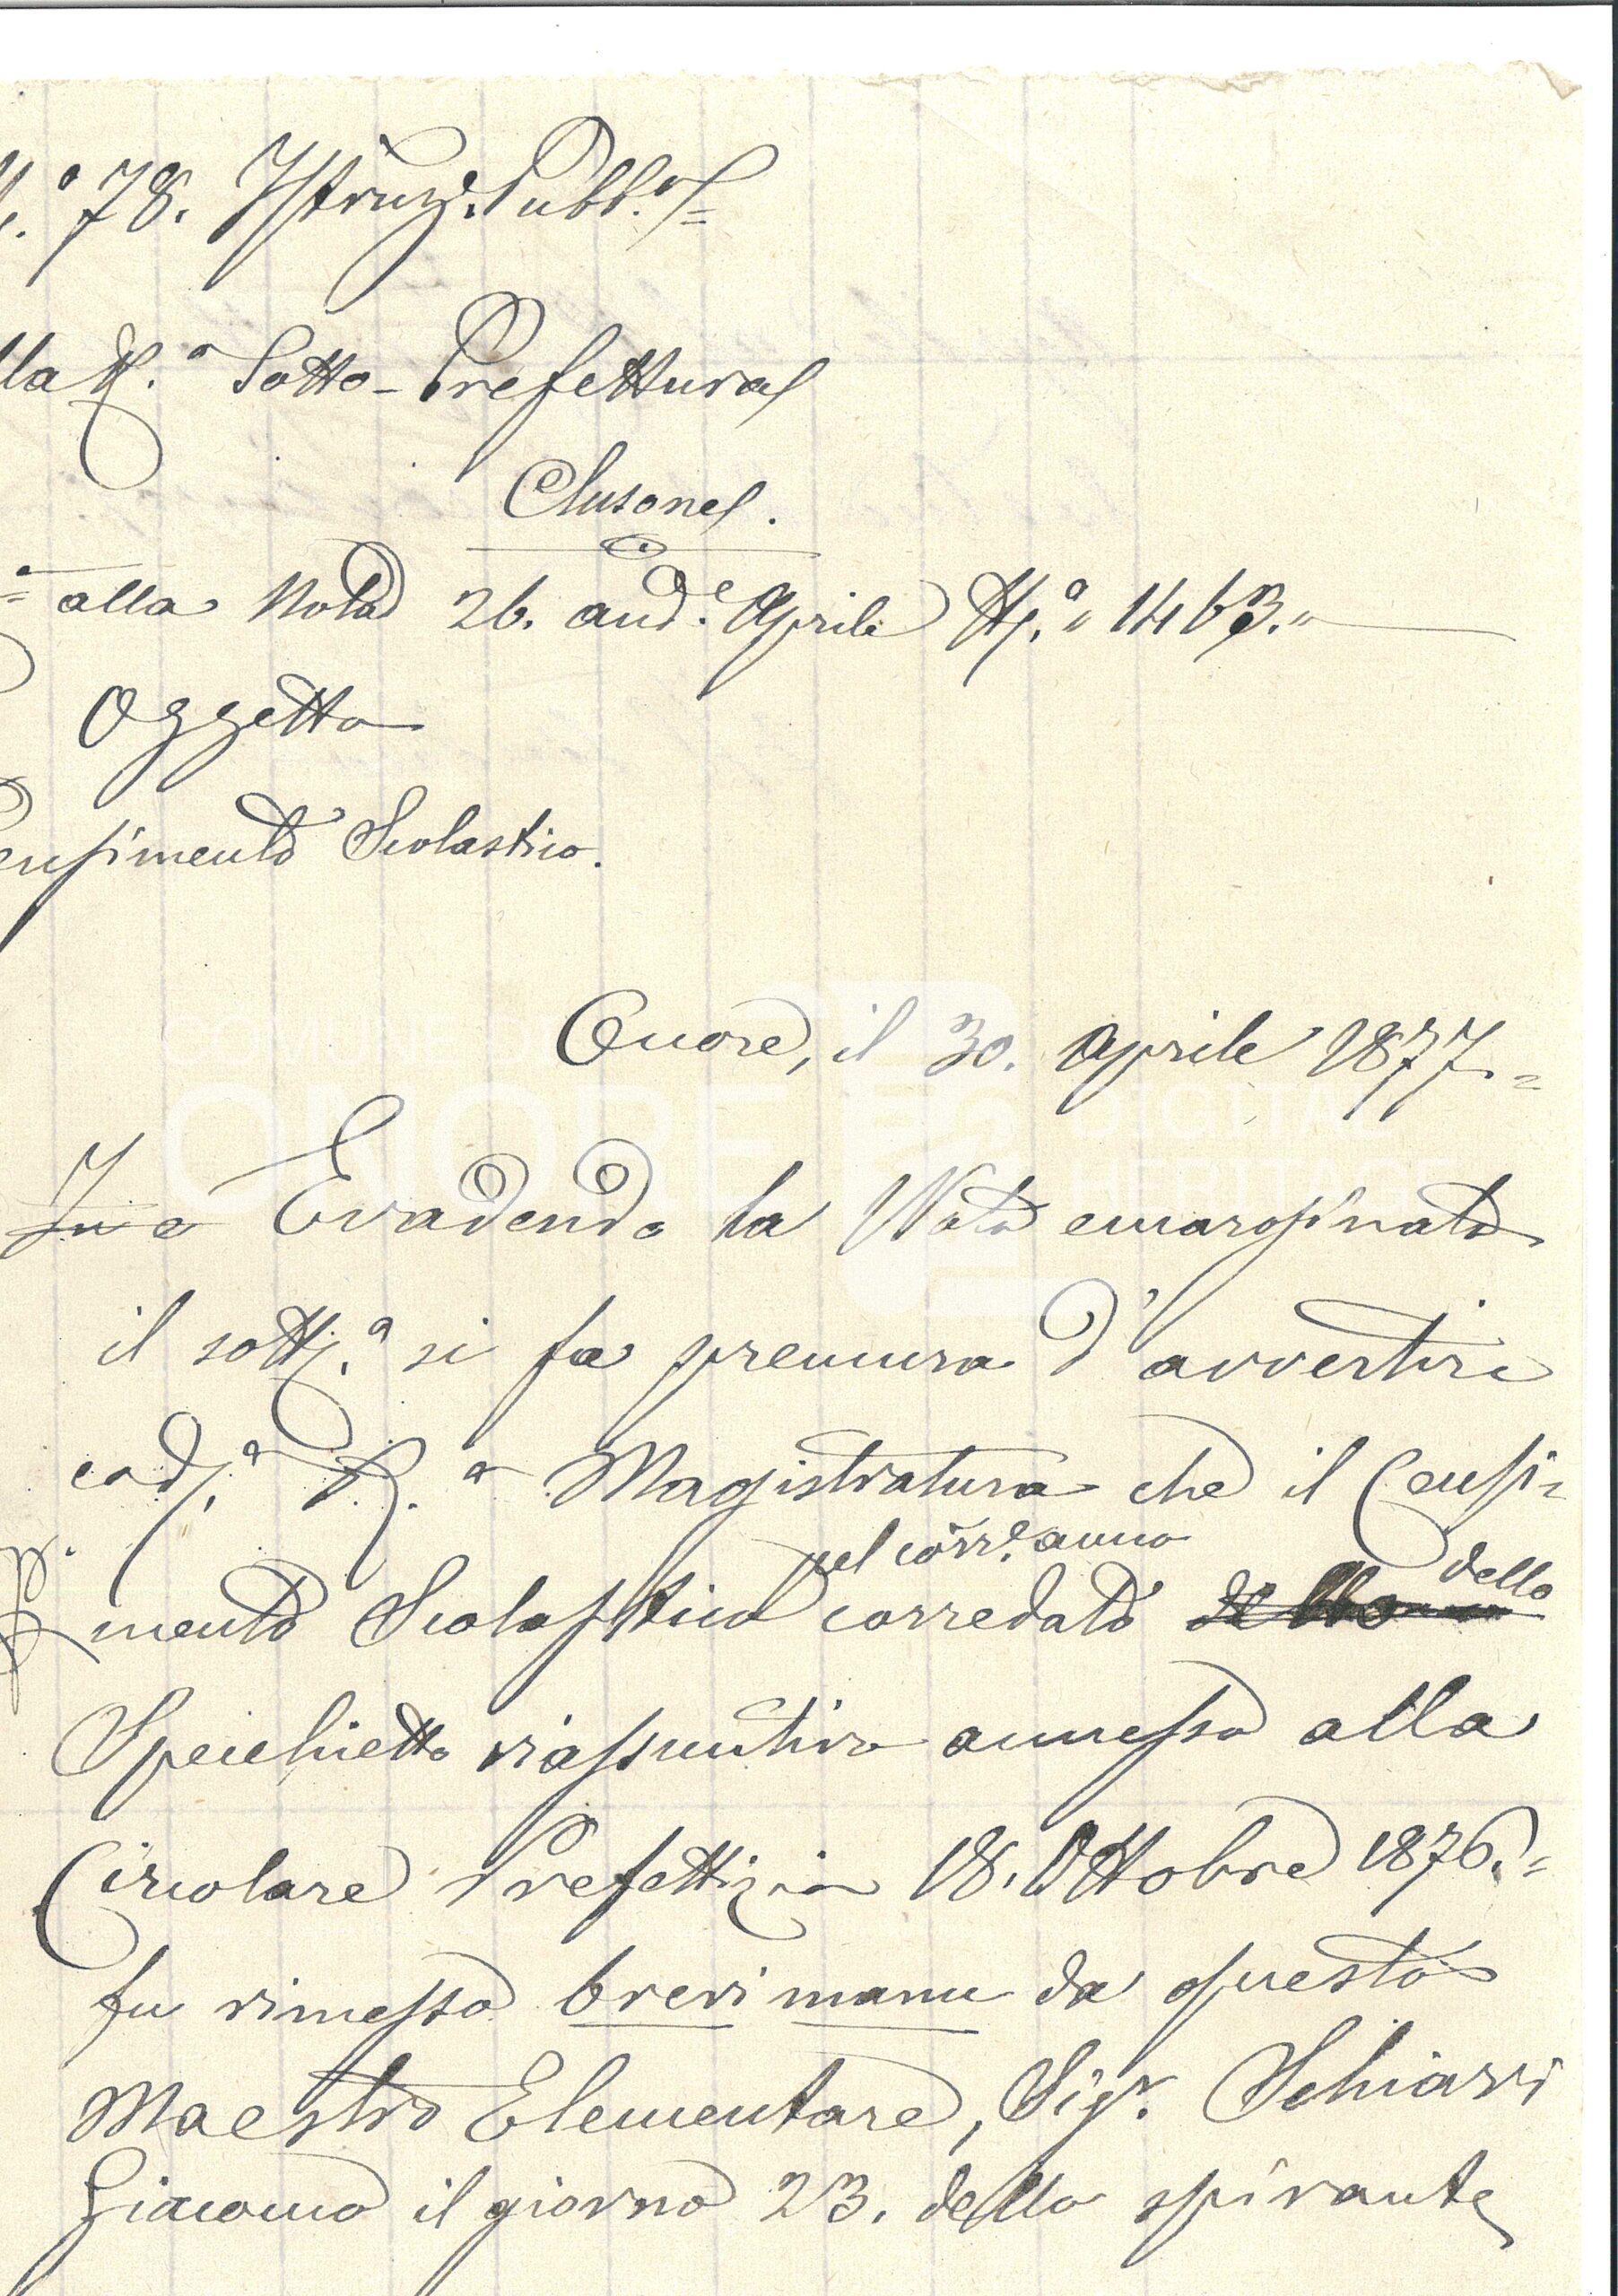 N.° 78. Istruz.e Pubb.a=
lla R.a Sotto-Prefettura
Clusone.
alla Nota 26. and.e Aprile N.° 1463.
Oggetto
ensimento Scolastico.
Onore, il 30. Aprile 1877.=
In e Evadendo la Nota emarginata
il sott.o si fa premura d'avvertire
cod.a R.a Magistratura che il Censi=
pel corr.e anno dello
mento Scolastico corredato dello
Specchietto riassuntivo annesso alla
Circolare Prefettizia 18. Ottobre 1876.=
fu rimesso brevi manu da questo
Maestro Elementare, Sig.r Schiavi
Giacomo il giorno 23. dello spirante